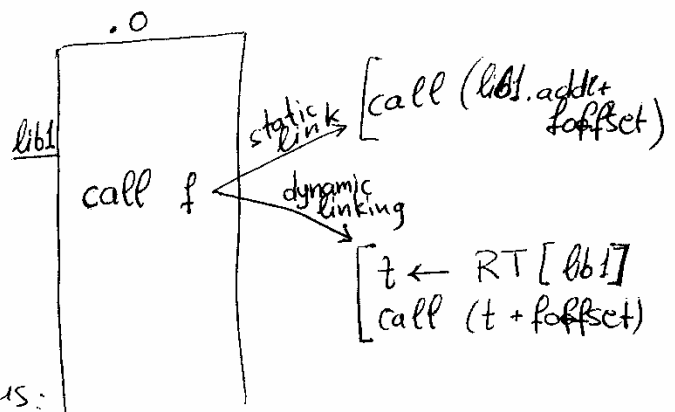 .O
lib1
call f
static link
call (lib1.addr+
foffset)
dynamic
linking
t ← RT [lib1]
call (t + foffset)